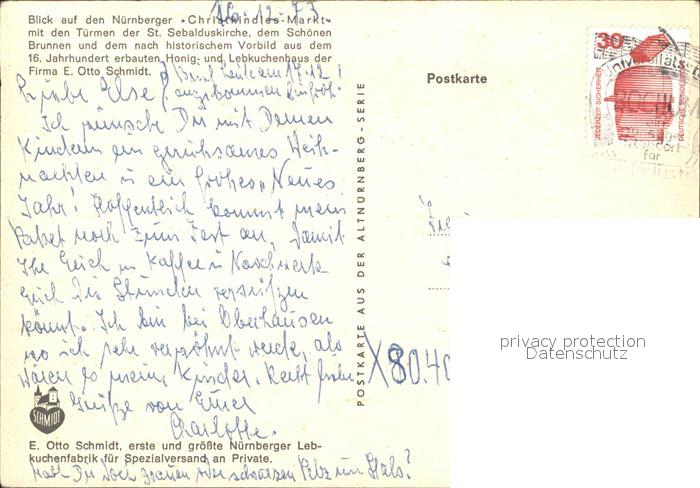 16.12.73
Blick auf den Nürnberger »Christkindles-Markt«
mit den Türmen der St. Sebalduskirche, dem Schönen
Brunnen und dem nach historischem Vorbild aus dem
16. Jahrhundert erbauten Honig- und Lebkuchenhaus der
Firma E. Otto Schmidt.
Brief heute am 17.12
Liebe Else! angekommen
Ich wünsche Dir mit Deinen
Kindern ein geruhsames Weih-
nachten u ein frohes "Neues
Jahr! Hoffentlich kommt mein
Paket noch zum Fest an, damit
Ihr Euch m Kaffee u Naschwerk
Euch die Stunden versüßen
könnt. Ich bin bei Oberhausen
wo ich sehr verwöhnt werde, als
wären es meine Kinder. Recht frohe
Grüße von Eurer
Charlotte.
SCHMIDT
E. Otto Schmidt, erste und größte Nürnberger Leb-
kuchenfabrik für Spezialversand an Private.
Hast Du noch grauen oder schwarzen Pelz um Hals?
POSTKARTE AUS DER ALTNÜRNBERG-SERIE
Postkarte
30
JEDERZEIT SICHERHEIT
DEUTSCHE BUNDESPOST
Universitäts-
BOCHUM
für
Industrie
X80.40
privacy protection
Datenschutz